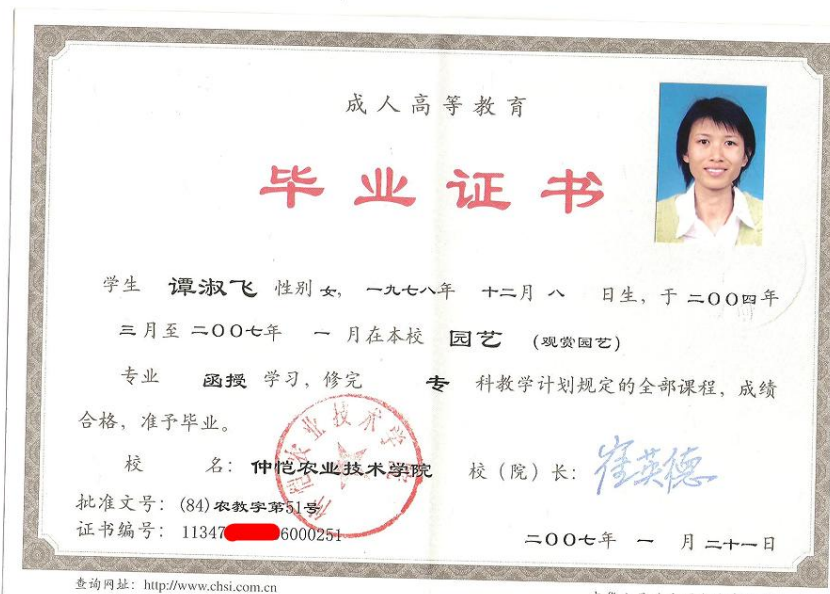 成人高等教育
毕业证书
学生 谭淑飞 性别 女, 一九七八年 十二月 八 日生, 于 二〇〇四年
三月至 二〇〇七年 一 月在本校 园艺 (观赏园艺)
专业 函授 学习, 修完 专 科教学计划规定的全部课程, 成绩
合格, 准予毕业。
校 名: 仲恺农业技术学院 校(院)长: 崔英德
批准文号: (84)农教字第51号
证书编号: 11347 6000251
仲恺农业技术学院
二〇〇七年 一 月 二十一日
查询网址: http://www.chsi.com.cn